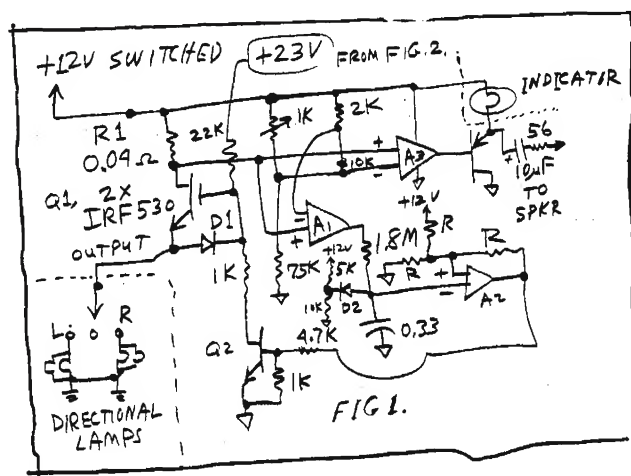 +12V SWITCHED
+23V
FROM FIG.2.
INDICATOR
R1
0.09Ω
22K
1K
2K
10K
+
-
A3
56
+
10µF
TO
SPKR
Q1,
2X
IRF530
D1
OUTPUT
-
+
A1
+12V
R
R
R
1.8M
+
-
A2
75K
+12V
5K
10K
D2
0.33
1K
L
O
R
Q2
4.7K
1K
DIRECTIONAL
LAMPS
FIG 1.